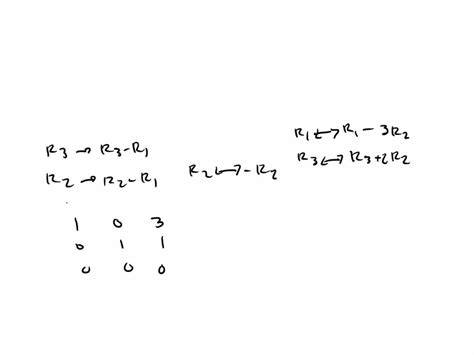 R3 → R3-R1
R2 → R2-R1
R2 ↔ -R2
R1 ↔ R1 - 3R2
R3 ↔ R3+2R2
1 0 3
0 1 1
0 0 0